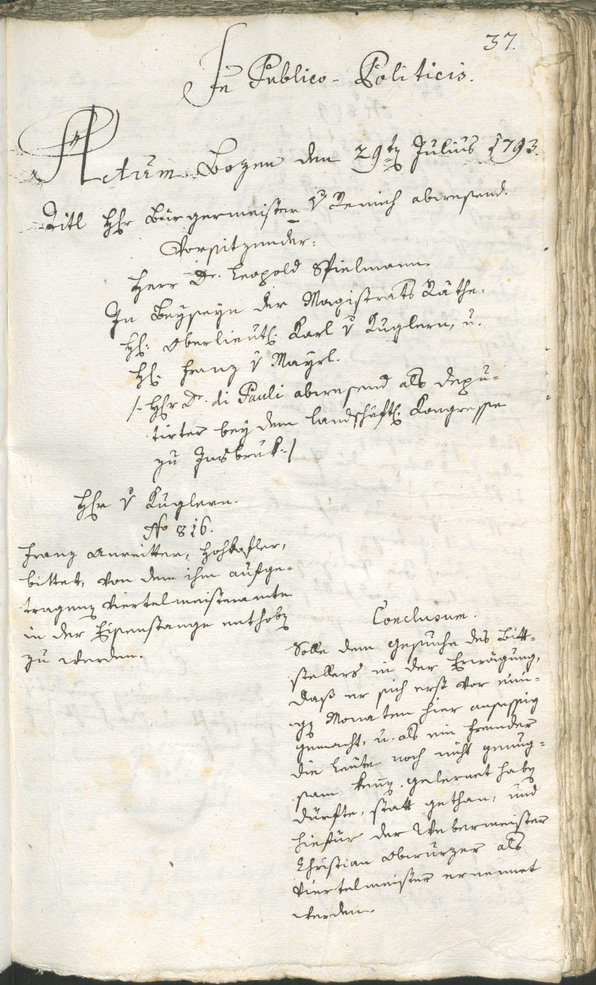 37.
In Publico-Politicis.
Actum Bozen den 29ten Julius 1793.
Titl Hhr Bürgermeister v Remich abwesend.
Vorsitzender:
Herr Dr. Leopold Spielmann.
In Beyseyn der Magistrats Räthe.
HH. Oberlieut. Karl v Kuglern, u.
HH. Franz v Mayrl.
/: Hhr Dr. di Pauli abwesend als Depu-
tirter bey dem landschäftl. Kongresse
zu Insbruk. :/
Hhr v Kuglern.
No 816.
Franz Anreitter, 
bittet, von dem ihm aufge-
tragenen Viertelmeisteramte
in der Eisenstange enthoben
zu werden.
Conclusum.
Solle dem Gesuche des Bitt-
stellers in der Erwägung,
daß er sich erst vor eini-
gen Monaten hier ansessig
gemacht, u. als ein Fremder
die Leute noch nicht genug-
sam kenen gelernet haben
dürfte, statt gethan, und
hiefür der Webermeister
Christian Oberurzer als
Viertelmeister ernennet
werden.